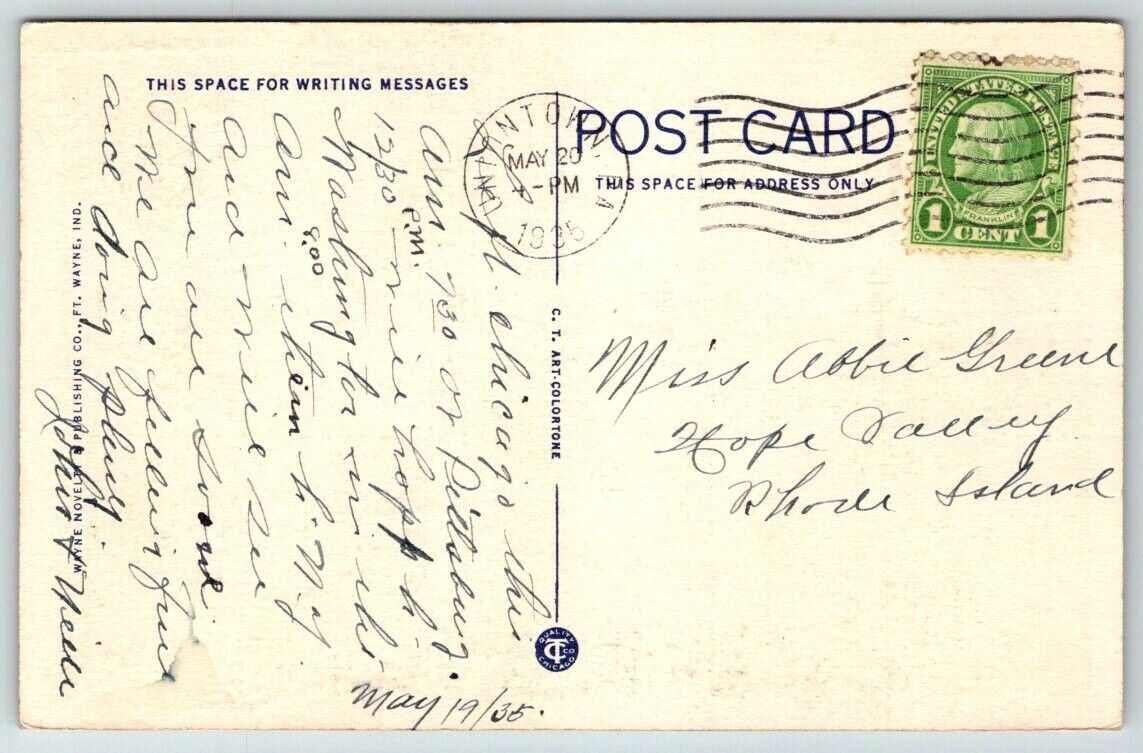 THIS SPACE FOR WRITING MESSAGES
POST CARD
THIS SPACE FOR ADDRESS ONLY
UNIONTOWN
MAY 20
4-PM
1935
UNITED STATES POSTAGE
FRANKLIN
1 CENT 1
Left Chicago this
Am. 7 30 or Pittsburg
12/30 P.M. we hope to
Washington in the
Am. then 8:00 N.Y.
and we see
are soon
We are feeling fine
and doing plenty
John &
May 19/35.
Miss Abbie Greene
Hope Valley
Rhode Island
C. T. ART-COLORTONE
QUALITY CT CO CHICAGO
WAYNE NOVELTY & PUBLISHING CO., FT. WAYNE, IND.